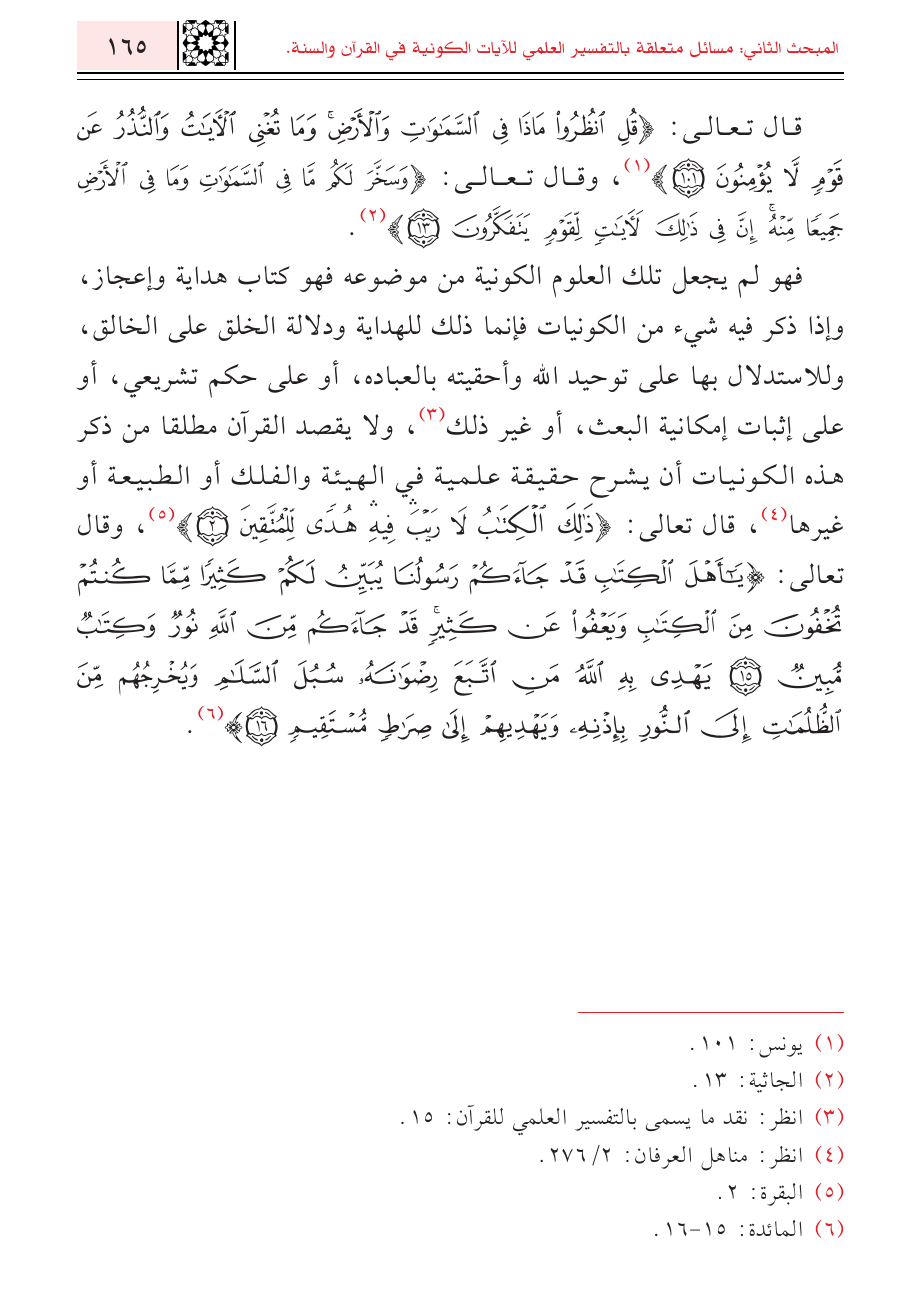 المبحث الثاني: مسائل متعلقة بالتفسير العلمي للآيات الكونية في القرآن والسنة. ١٦٥
قال تعالى: ﴿قُلِ ٱنظُرُوا۟ مَاذَا فِى ٱلسَّمَٰوَٰتِ وَٱلْأَرْضِ ۚ وَمَا تُغْنِى ٱلْءَايَٰتُ وَٱلنُّذُرُ عَن
قَوْمٍ لَّا يُؤْمِنُونَ ١٠١﴾(١)، وقال تعالى: ﴿وَسَخَّرَ لَكُم مَّا فِى ٱلسَّمَٰوَٰتِ وَمَا فِى ٱلْأَرْضِ
جَمِيعًا مِّنْهُ ۚ إِنَّ فِى ذَٰلِكَ لَءَايَٰتٍ لِّقَوْمٍ يَتَفَكَّرُونَ ١٣﴾(٢).
فهو لم يجعل تلك العلوم الكونية من موضوعه فهو كتاب هداية وإعجاز،
وإذا ذكر فيه شيء من الكونيات فإنما ذلك للهداية ودلالة الخلق على الخالق،
وللاستدلال بها على توحيد الله وأحقيته بالعباده، أو على حكم تشريعي، أو
على إثبات إمكانية البعث، أو غير ذلك(٣)، ولا يقصد القرآن مطلقا من ذكر
هذه الكونيات أن يشرح حقيقة علمية في الهيئة والفلك أو الطبيعة أو
غيرها(٤)، قال تعالى: ﴿ذَٰلِكَ ٱلْكِتَٰبُ لَا رَيْبَ ۛ فِيهِ ۛ هُدًى لِّلْمُتَّقِينَ ٢﴾(٥)، وقال
تعالى: ﴿يَٰٓأَهْلَ ٱلْكِتَٰبِ قَدْ جَآءَكُمْ رَسُولُنَا يُبَيِّنُ لَكُمْ كَثِيرًا مِّمَّا كُنتُمْ
تُخْفُونَ مِنَ ٱلْكِتَٰبِ وَيَعْفُوا۟ عَن كَثِيرٍ ۚ قَدْ جَآءَكُم مِّنَ ٱللَّهِ نُورٌ وَكِتَٰبٌ
مُّبِينٌ ١٥ يَهْدِى بِهِ ٱللَّهُ مَنِ ٱتَّبَعَ رِضْوَٰنَهُۥ سُبُلَ ٱلسَّلَٰمِ وَيُخْرِجُهُم مِّنَ
ٱلظُّلُمَٰتِ إِلَى ٱلنُّورِ بِإِذْنِهِۦ وَيَهْدِيهِمْ إِلَىٰ صِرَٰطٍ مُّسْتَقِيمٍ ١٦﴾(٦).
(١) يونس: ١٠١.
(٢) الجاثية: ١٣.
(٣) انظر: نقد ما يسمى بالتفسير العلمي للقرآن: ١٥.
(٤) انظر: مناهل العرفان: ٢/ ٢٧٦.
(٥) البقرة: ٢.
(٦) المائدة: ١٥-١٦.